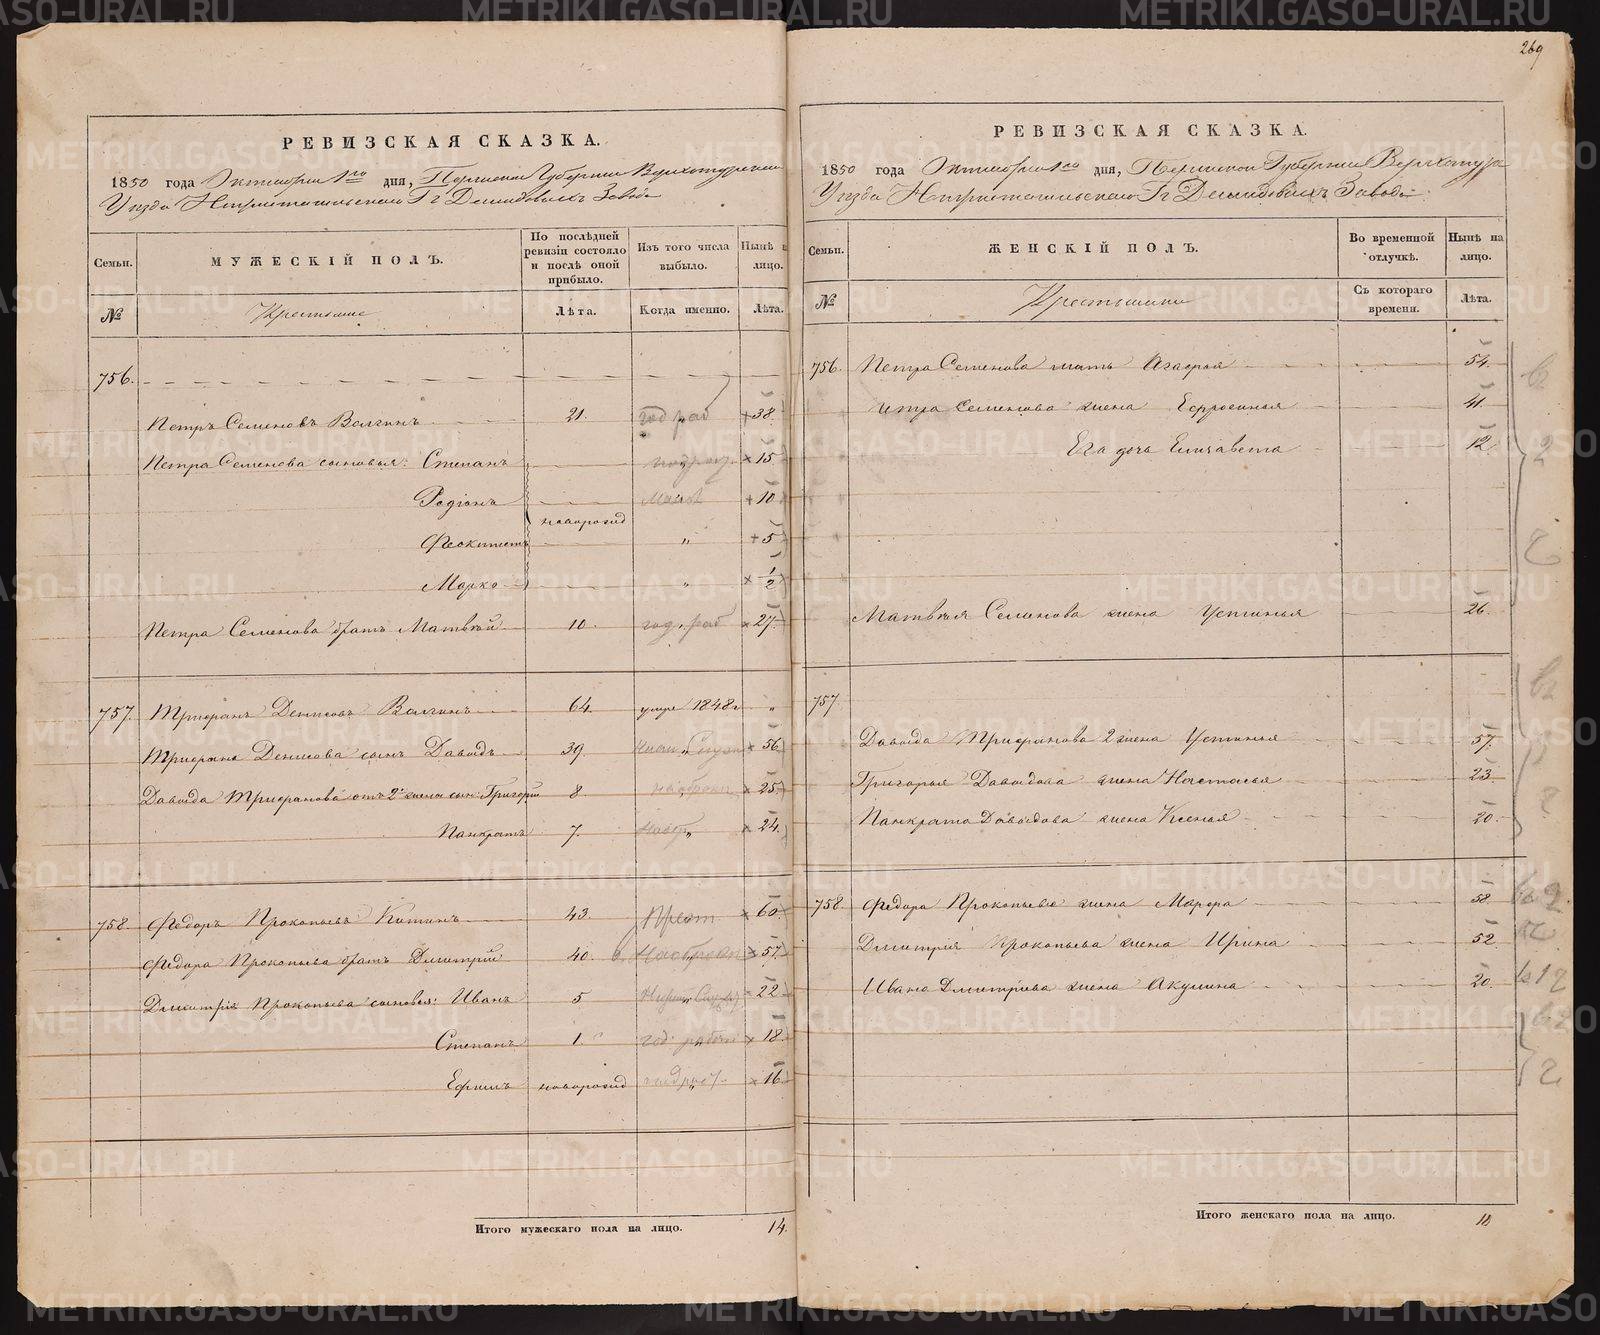 269
РЕВИЗСКАЯ СКАЗКА.
1850 года Октября 1го дня, Пермской Губернии Верхотурскаго
Уезда Нижнетагильскаго Гг Демидовыхъ Завода
Семьи.
МУЖЕСКІЙ ПОЛЪ.
По послѣдней ревизіи состояло и послѣ оной прибыло.
Изъ того числа выбыло.
Нынѣ на лицо.
№
Крестьяне
Лѣта.
Когда именно.
Лѣта.
756.
Петръ Семеновъ Волгинъ 21. год раб 38.
Петра Семенова сыновья: Степанъ подрос. 15
Родіонъ 10
новорожд
Феоктистъ " 5
Марко " 1/2
Петра Семенова братъ Матвѣй 10. год. раб 27.
757. Трифонъ Денисовъ Волгинъ 64. умре 1848 г "
Трифона Денисова сынъ Давыдъ 39. 56
Давыда Трифонова отъ 2й жены сын: Григорій 8. 25.
Панкратъ 7. 24.
758. Федоръ Прокопьевъ Китинъ 43. Прест 60.
Федора Прокопьева братъ Дмитрій 40. 57.
Дмитрія Прокопьева сыновья: Иванъ 5 22
Степанъ 1. год. работ 18.
Ефимъ новорожд подрос 16.
Итого мужескаго пола на лицо. 14.
РЕВИЗСКАЯ СКАЗКА.
1850 года Октября 1го дня, Пермской Губерніи Верхотурск
Уезда Нижнетагильскаго Гг Демидовыхъ Завода
Семьи.
ЖЕНСКІЙ ПОЛЪ.
Во временной отлучкѣ.
Нынѣ на лицо.
№
Крестьянки
Съ котораго времени.
Лѣта.
756. Петра Семенова мать Агафья 54.
Петра Семенова жена Ефросинья 41.
Его дочь Елизавета 12
Матвѣя Семенова жена Устинья 26.
757.
Давыда Трифонова 2 жена Устинья 57.
Григорья Давыдова жена Настасья 23
Панкрата Давыдова жена Ксенья 20.
758. Федора Прокопьева жена Марфа 58.
Дмитрія Прокопьева жена Ирина 52
Ивана Дмитріева жена Акулина 20.
Итого женскаго пола на лицо. 10
METRIKI.GASO-URAL.RU